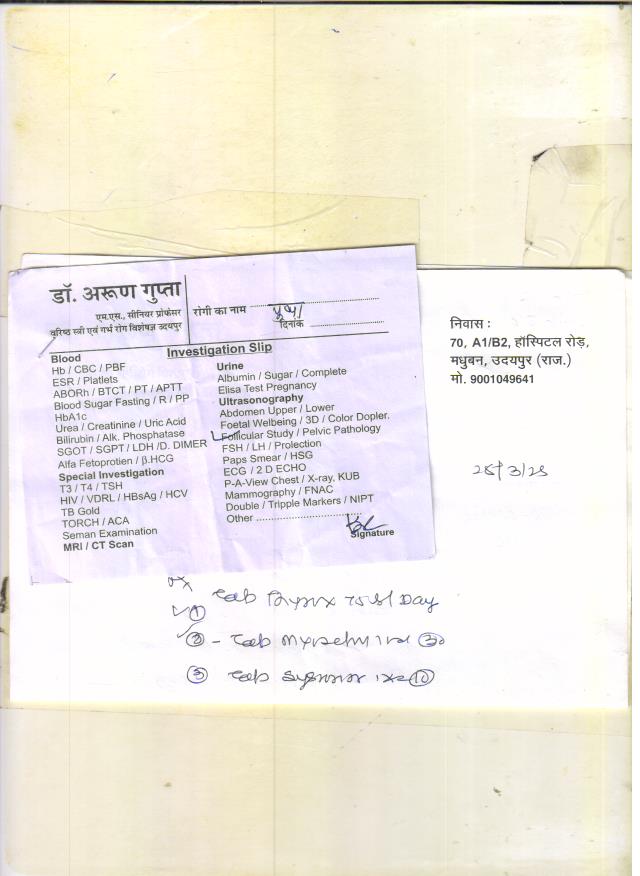 डॉ. अरूण गुप्ता
एम.एस., सीनियर प्रोफेसर
वरिष्ठ स्त्री एवं गर्भ रोग विशेषज्ञ उदयपुर
रोगी का नाम
दिनांक
Investigation Slip
Blood
Hb / CBC / PBF
ESR / Platlets
ABORh / BTCT / PT / APTT
Blood Sugar Fasting / R / PP
HbA1c
Urea / Creatinine / Uric Acid
Bilirubin / Alk. Phosphatase
SGOT / SGPT / LDH /D. DIMER
Alfa Fetoprotien / β.HCG
Special Investigation
T3 / T4 / TSH
HIV / VDRL / HBsAg / HCV
TB Gold
TORCH / ACA
Seman Examination
MRI / CT Scan
Urine
Albumin / Sugar / Complete
Elisa Test Pregnancy
Ultrasonography
Abdomen Upper / Lower
Foetal Welbeing / 3D / Color Dopler.
Follicular Study / Pelvic Pathology
FSH / LH / Prolection
Paps Smear / HSG
ECG / 2 D ECHO
P-A-View Chest / X-ray. KUB
Mammography / FNAC
Double / Tripple Markers / NIPT
Other
Signature
निवास :
70, A1/B2, हॉस्पिटल रोड़,
मधुबन, उदयपुर (राज.)
मो. 9001049641
Rx
① Tab Day
② - Tab 30
③ Tab 10